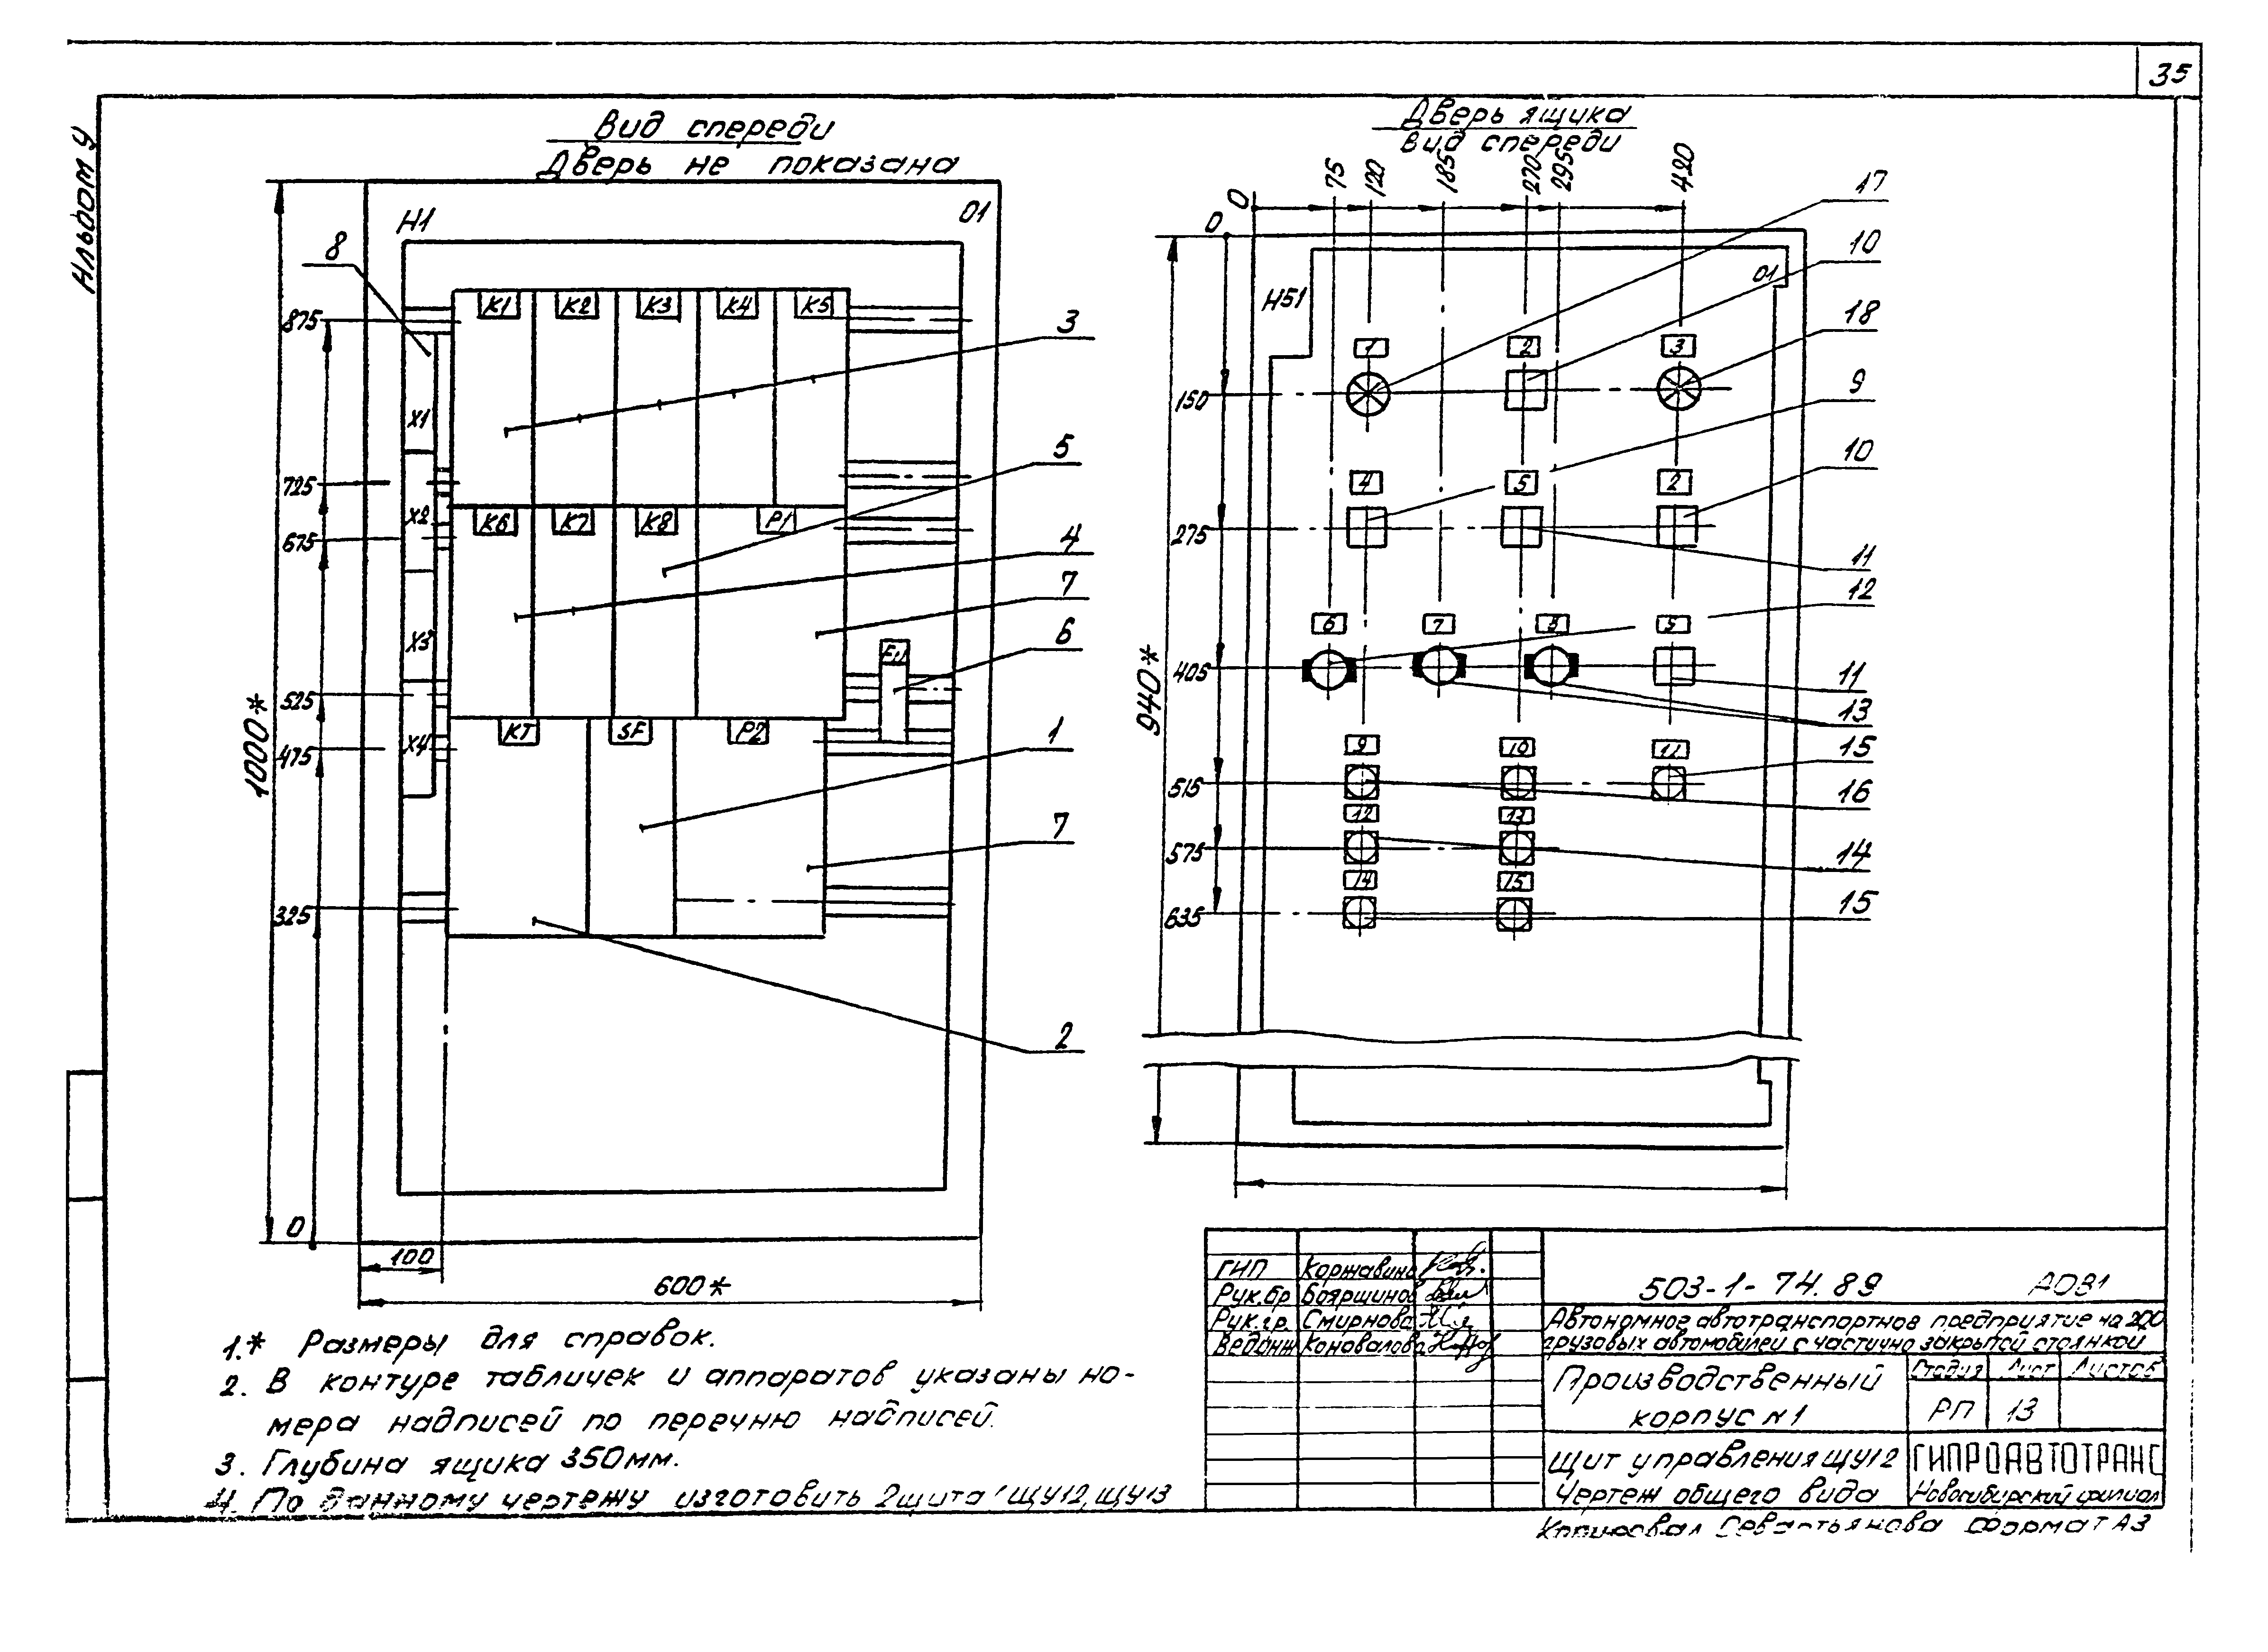 35
Альбом 4
Вид спереди
Дверь не показана
Н1
01
8
875
725
675
525
475
325
0
1000*
100
600*
К1 К2 К3 К4 К5
К6 К7 К8 Р1
КТ SF Р2
Х1
Х2
Х3
Х4
3
5
4
7
6
1
7
2
Дверь ящика
Вид спереди
0 75 120 185 270 295 420
0
Н51
01
150
275
405
515
575
635
940*
1 2 3
4 5 2
6 7 8 5
9 10 11
12 13
14 15
17
10
18
9
10
11
12
11
13
15
16
14
15
1.* Размеры для справок.
2. В контуре табличек и аппаратов указаны но-
мера надписей по перечню надписей.
3. Глубина ящика 350мм.
4. По данному чертежу изготовить 2щита: ЩУ12, ЩУ13
ГИП Коржавин
Рук.бр Боярщинов
Рук.гр. Смирнова
Вед.инж Коновалова
503-1-74.89 АОВ1
Автономное автотранспортное предприятие на 200
грузовых автомобилей с частично закрытой стоянкой
Производственный
корпус №1
Стадия Лист Листов
РП 13
Щит управления ЩУ12
Чертеж общего вида
ГИПРОАВТОТРАНС
Новосибирский филиал
Копировал Севастьянова Формат А3